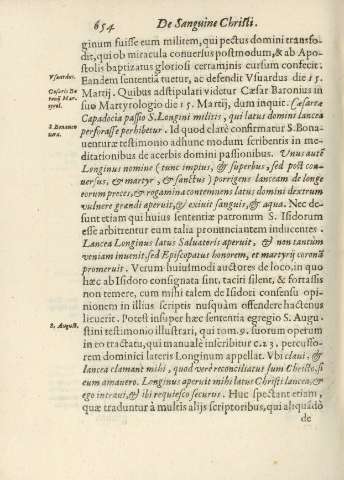 654 De Sanguine Christi.
ginum fuisse eum militem, qui pectus domini transfo-
dit, qui ob miracula conuersus postmodum, & ab Apo-
stolis baptizatus gloriosi certaminis cursum confecit.
Vsuardus. Eandem sententiã tuetur, ac defendit Vsuardus die 15.
Cæsaris Ba Martij. Quibus adstipulari videtur Cæsar Baronius in
ronij Mar-
tyrol. suo Martyrologio die 15. Martij, dum inquit. Cæsareæ
Capadocia passio S. Longini militis, qui latus domini lancea
S. Bonauen perforasse perhibetur. Id quod clarè confirmatur S. Bona-
tura. uenturæ testimonio adhunc modum scribentis in me-
ditationibus de acerbis domini passionibus. Vnus autẽ
Longinus nomine (tunc impius, & superbus, sed post con-
uersus, & martyr, & sanctus) porrigens lanceam de longe
eorum preces, & rogamina contemnens latus domini dextrum
vulnere grandi aperuit, & exiuit sanguis, & aqua. Nec de-
sunt etiam qui huius sententiæ patronum S. Isidorum
esse arbitrentur eum talia pronunciantem inducentes.
Lancea Longinus latus Saluatoris aperuit, & non tantùm
veniam inuenit, sed Episcopatus honorem, et martyrij coronã
promeruit. Verum huiusmodi auctores de loco, in quo
hæc ab Isidoro consignata sint, taciti silent, & fortassis
non temere, cum mihi talem de Isidori consensu opi-
nionem in illius scriptis nusquàm offendere hactenus
licuerit. Potest insuper hæc sententia egregio S. Augu-
S. August. stini testimonio illustrari, qui tom. 9. suorum operum
in eo tractatu, qui manuale inscribitur c. 23. percusso-
rem dominici lateris Longinum appellat. Vbi claui, &
lancea clamant mihi, quod verè reconciliatus sum Christo, si
eum amauero. Longinus aperuit mihi latus Christi lancea, &
ego intraui, & ibi requiesco securus. Huc spectant etiam,
quæ traduntur à multis alijs scriptoribus, qui aliquãdo
de